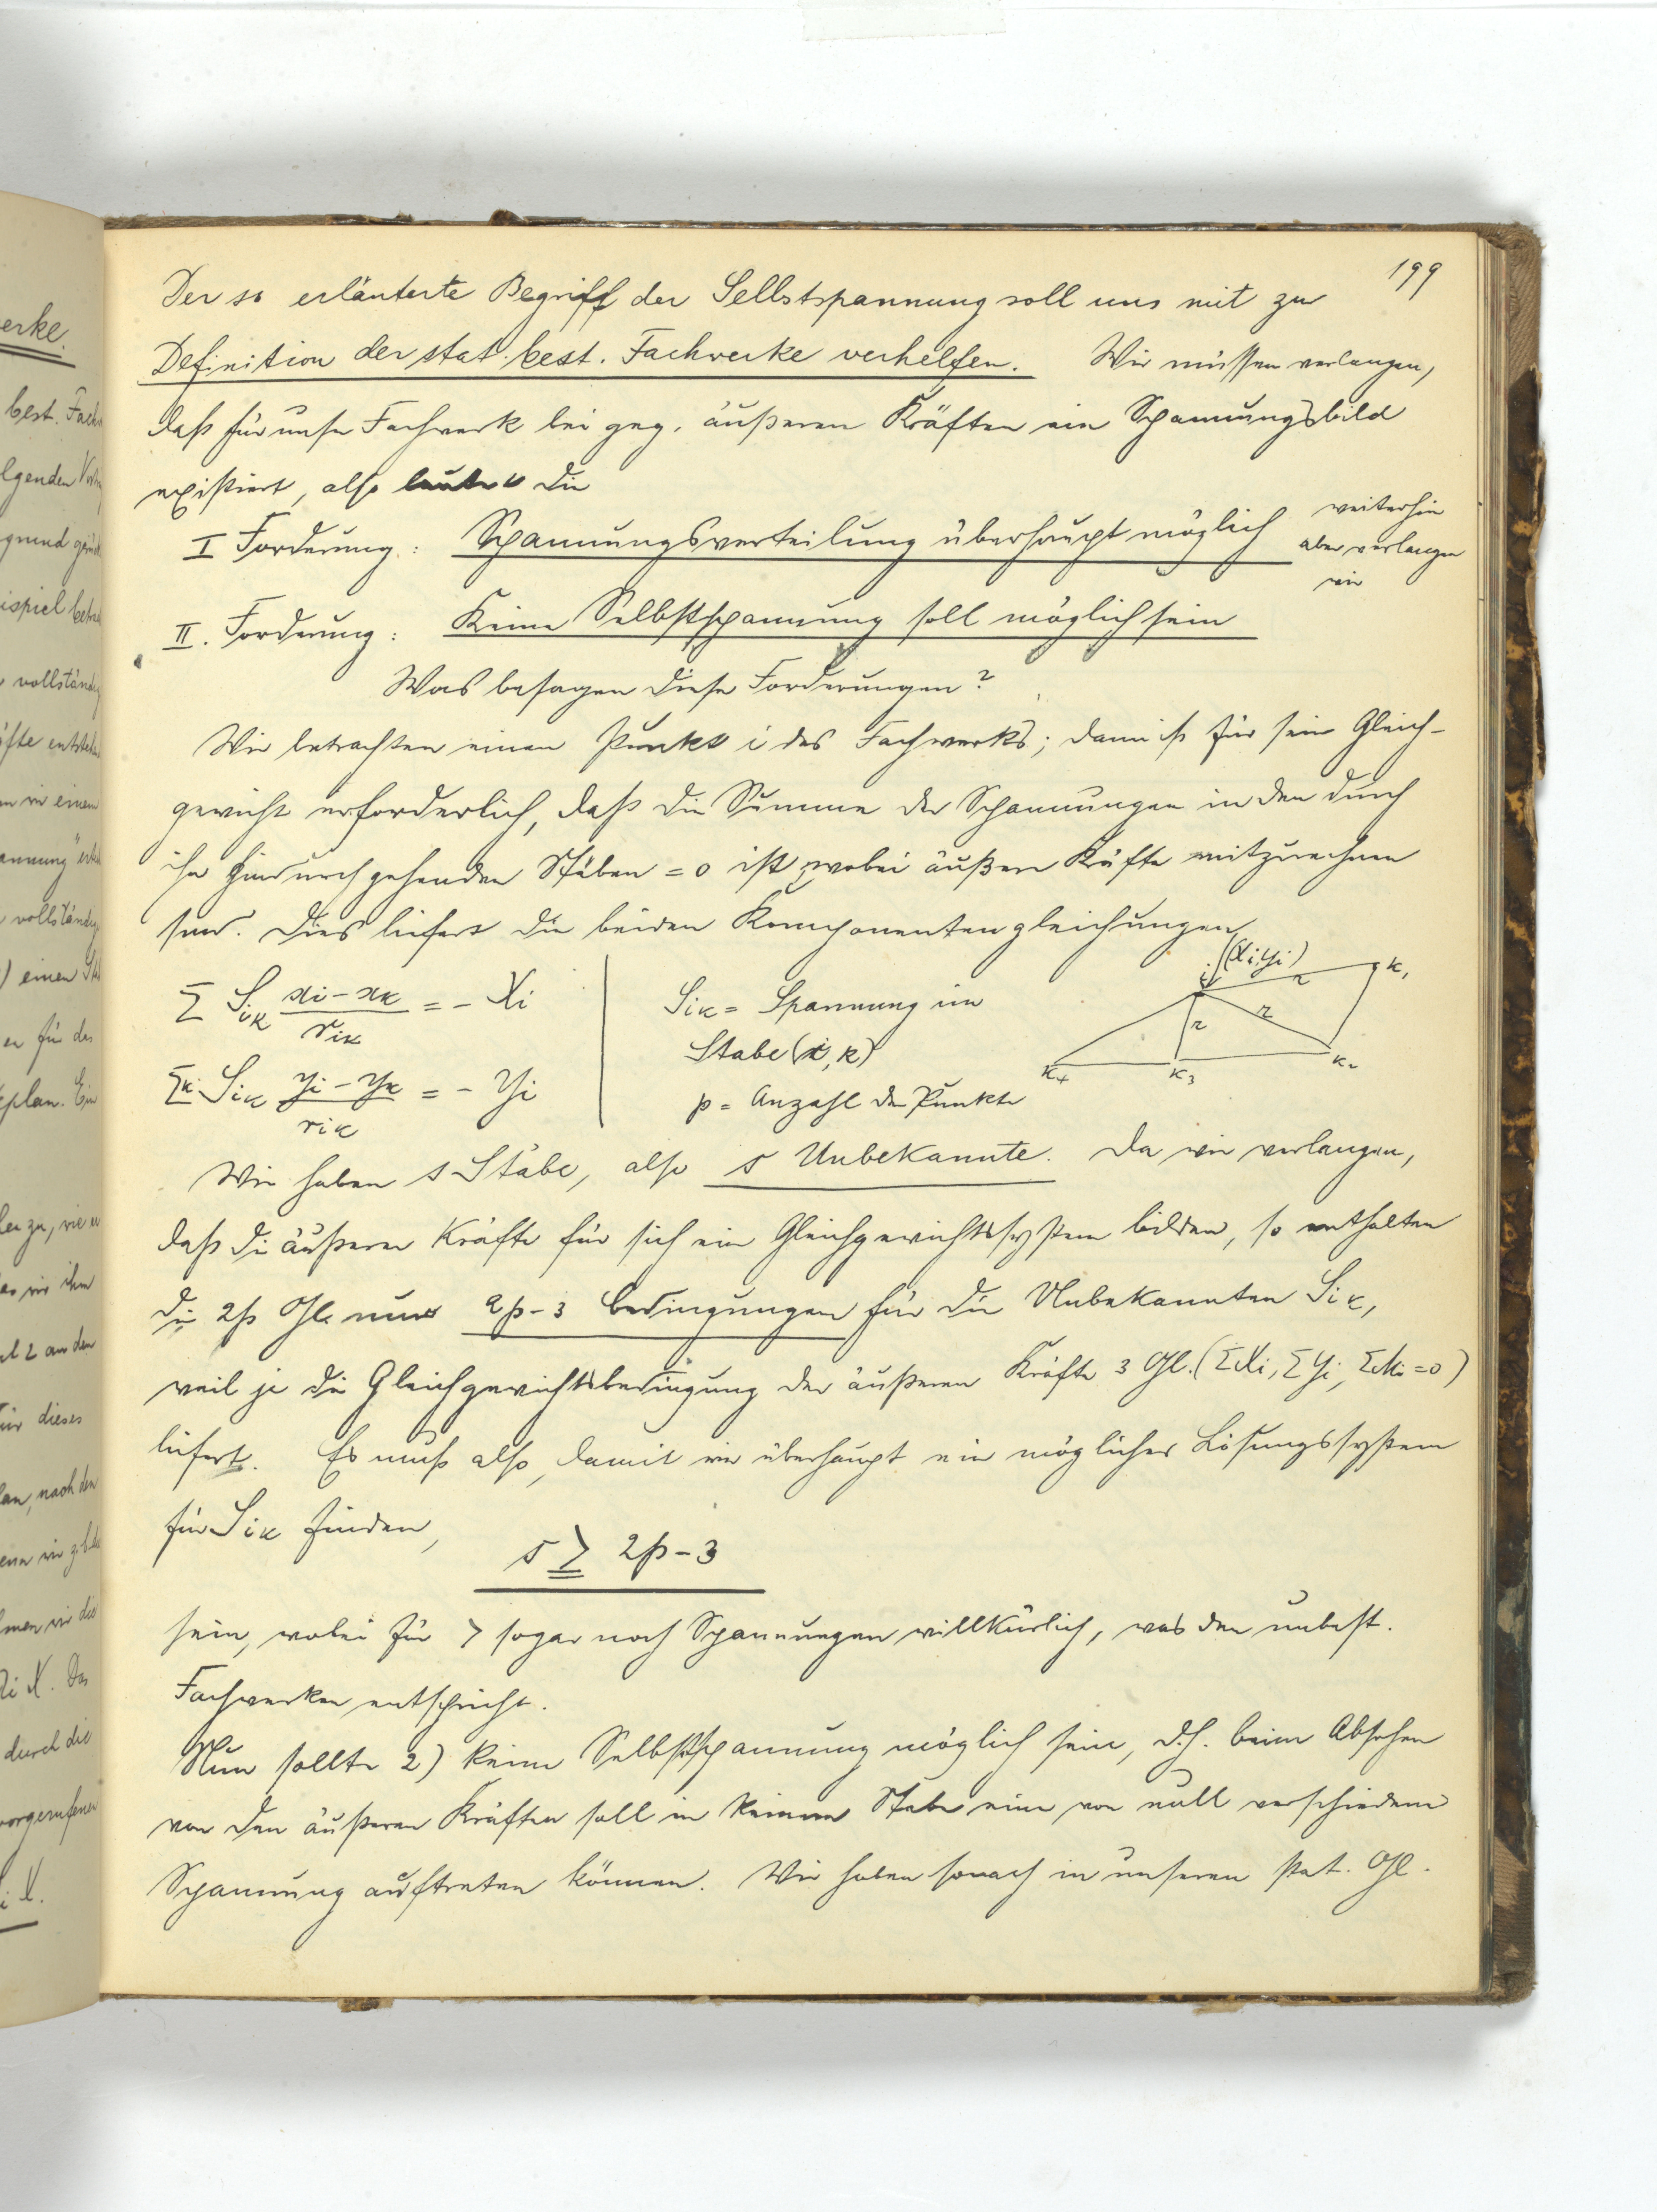 199
Der so erläuterte Begriff der Selbstspannung soll uns mit zur
Definition der stat. best. Fachwerke verhelfen. Wir müssen verlangen,
daß für unser Fachwerk bei geg. äußeren Kräften ein Spannungsbild
existiert, also lautet die
I Forderung: Spannungsverteilung überhaupt möglich
weiterhin
aber verlangen
wir
II. Forderung: Keine Selbstspannung soll möglich sein
Was besagen diese Forderungen?
Wir betrachten einen Punkt i des Fachwerks; dann ist für sein Gleich-
gewicht erforderlich, daß die Summe der Spannungen in den durch
ihn hindurchgehenden Stäben = 0 ist, wobei äußere Kräfte mitzurechnen
sind. Dies liefert die beiden Komponentengleichungen
Σ Sik (xi - xk)/rik = - Xi
Σk Sik (yi - yk)/rik = - Yi
Sik = Spannung im
Stabe (i, k)
p = Anzahl der Punkte
(Xi, Yi)
i
r
r
r
k1
k2
k3
k4
Wir haben s Stäbe, also s Unbekannte. Da wir verlangen,
daß die äußeren Kräfte für sich ein Gleichgewichtssystem bilden, so enthalten
die 2p Gl. nur 2p-3 Bedingungen für die Unbekannten Sik,
weil je die Gleichgewichtsbedingung der äußeren Kräfte 3 Gl. (ΣXi, ΣYi, ΣMi = 0)
liefert. Es muß also, damit wir überhaupt ein mögliches Lösungssystem
für Sik finden,
s ≧ 2p-3
sein, wobei für > sogar noch Spannungen willkürlich, was den unbest.
Fachwerken entspricht.
Nun sollte 2) keine Selbstspannung möglich sein, d.h. beim Absehen
von den äußeren Kräften soll in keinem Stabe eine von null verschiedene
Spannung auftreten können. Wir haben sonach in unseren stat. Gl.